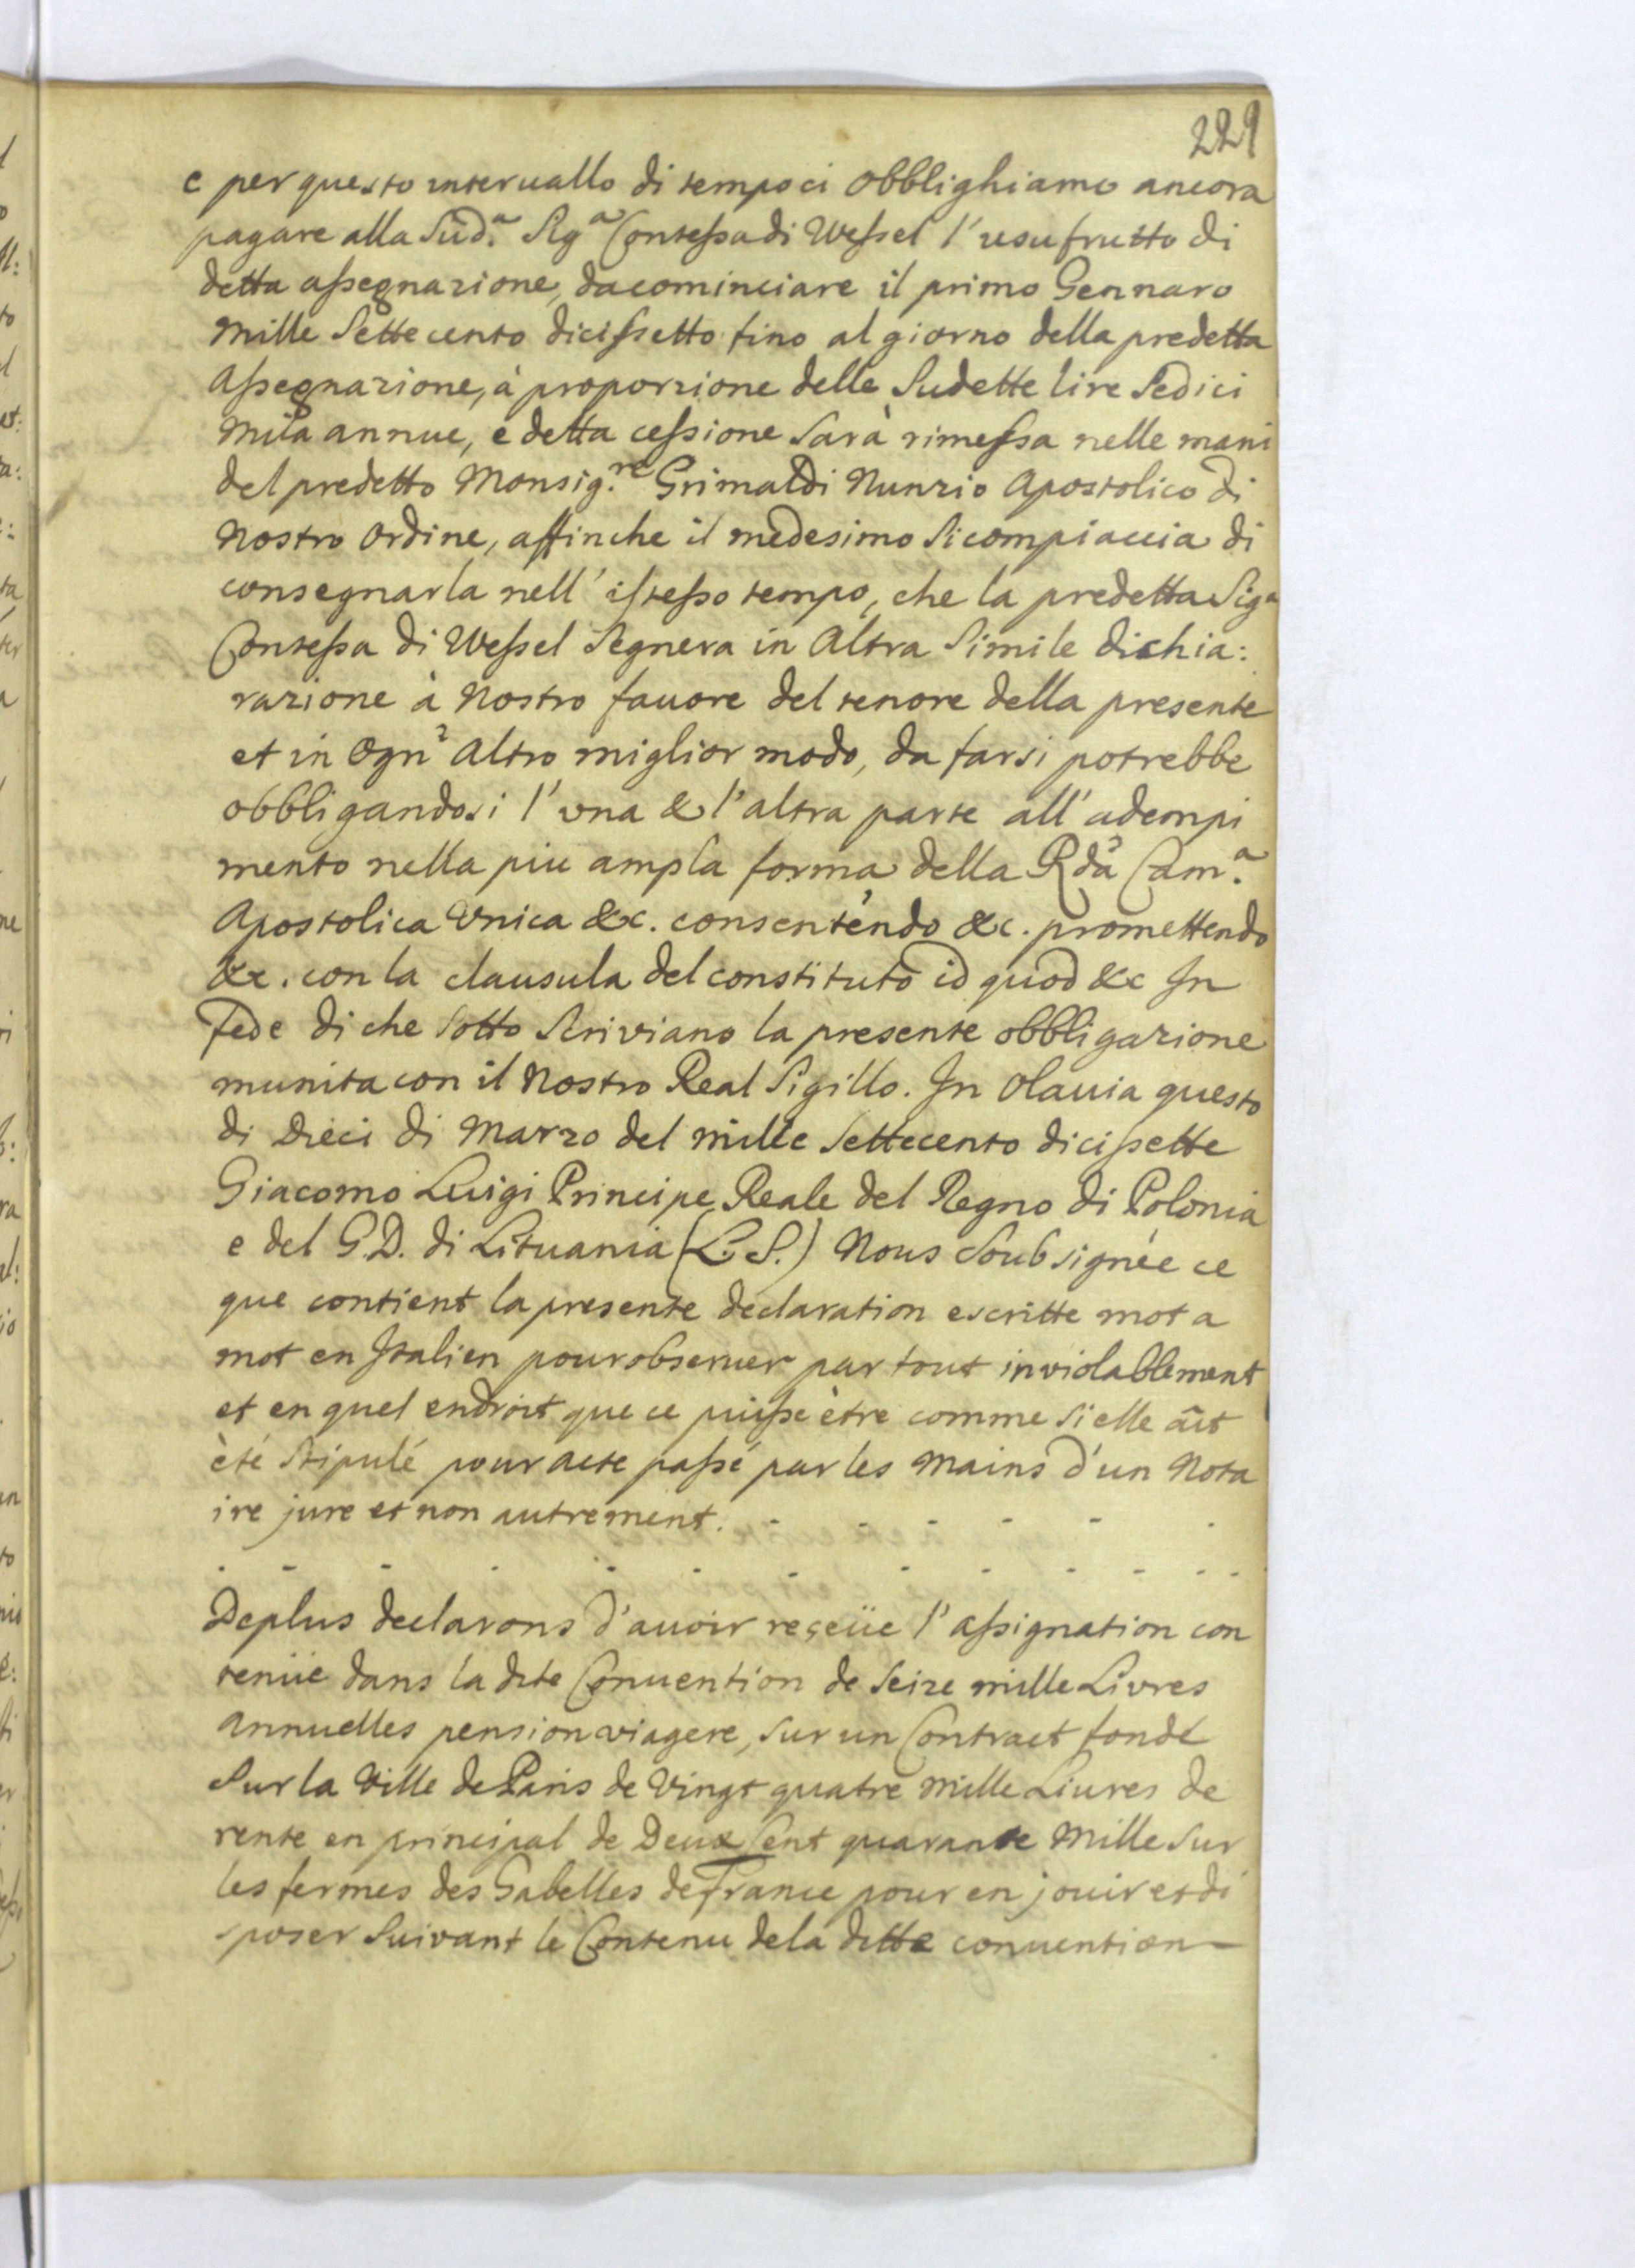 229
e per questo interuallo di tempo ci obblighiamo ancora
pagare alla Sud.ª Sigª Contessa di Wessel l'usufrutto di
detta assegnazione, da cominciare il primo Gennaro
Mille Settecento dicissetto fino al giorno della predetta
Assegnazione, à proporzione delle Sudette lire Sedici
Mila annue, e detta cessione Sarà rimessa nelle mani
del predetto Monsig.re Grimaldi Nunzio Apostolico di
Nostro Ordine, affinche il medesimo Si compiaccia di
consegnarla nell' istesso tempo, che la predetta Sigª
Contessa di Wessel Segnera in Altra Simile dichia:
razione à Nostro fauore del tenore della presente
et in Ogn' Altro miglior modo, da farsi potrebbe
obbligandosi l'una & l'altra parte all' adempi
mento nella piu ampla forma della Rda Cam.ª
Apostolica Vnica &c. consentendo &c. promettendo
&c. con la clausula del constituto id quod &c In
Fede di che Sotto Scriviano la presente obbligazione
munita con il Nostro Real Sigillo. In Olauia questo
di Dieci di Marzo del mille Settecento dicissette
Giacomo Luigi Principe Reale del Regno di Polonia
e del G.D. di Lituania (L.S.) Nous Soubsignée ce
que contient la presente declaration escritte mot a
mot en Italien pour obseruer par tout inviolablement
et en quel endroit que ce puisse ètre comme Si elle aût
èté Stipulé pour acte passé par les Mains d'un Nota
ire jure et non autrement. - - - - - .
- - - - - - - - - - - - -
De plus declarons d'auoir reçeüe l'assignation con
tenüe dans la dite Conuention de Seize mille Livres
Annuelles pension viagere, Sur un Contract fondé
Sur la Ville de Paris de Vingt quatre Mille Liures de
rente en principal de Deux Cent quarante Mille Sur
les fermes des Gabelles de France pour en jouir et di
sposer Suivant le Contenu de la ditte conuention